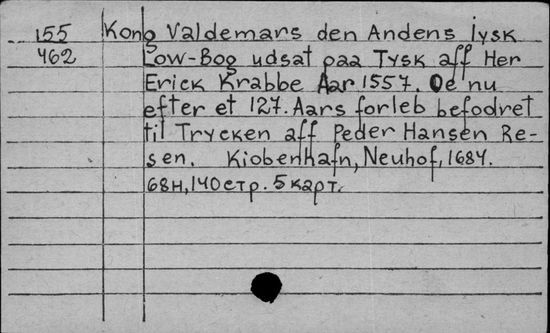 155 Kong Valdemars den Andens Iysk
462 Low-Bog udsat paa Tysk aff Her
Erick Krabbe Aar 1557. Oe nu
efter et 127. Aars forleb befodret
til Trycken aff Peder Hansen Re-
sen. Kiobenhafn, Neuhof, 1684.
68н, 140 стр. 5 карт.